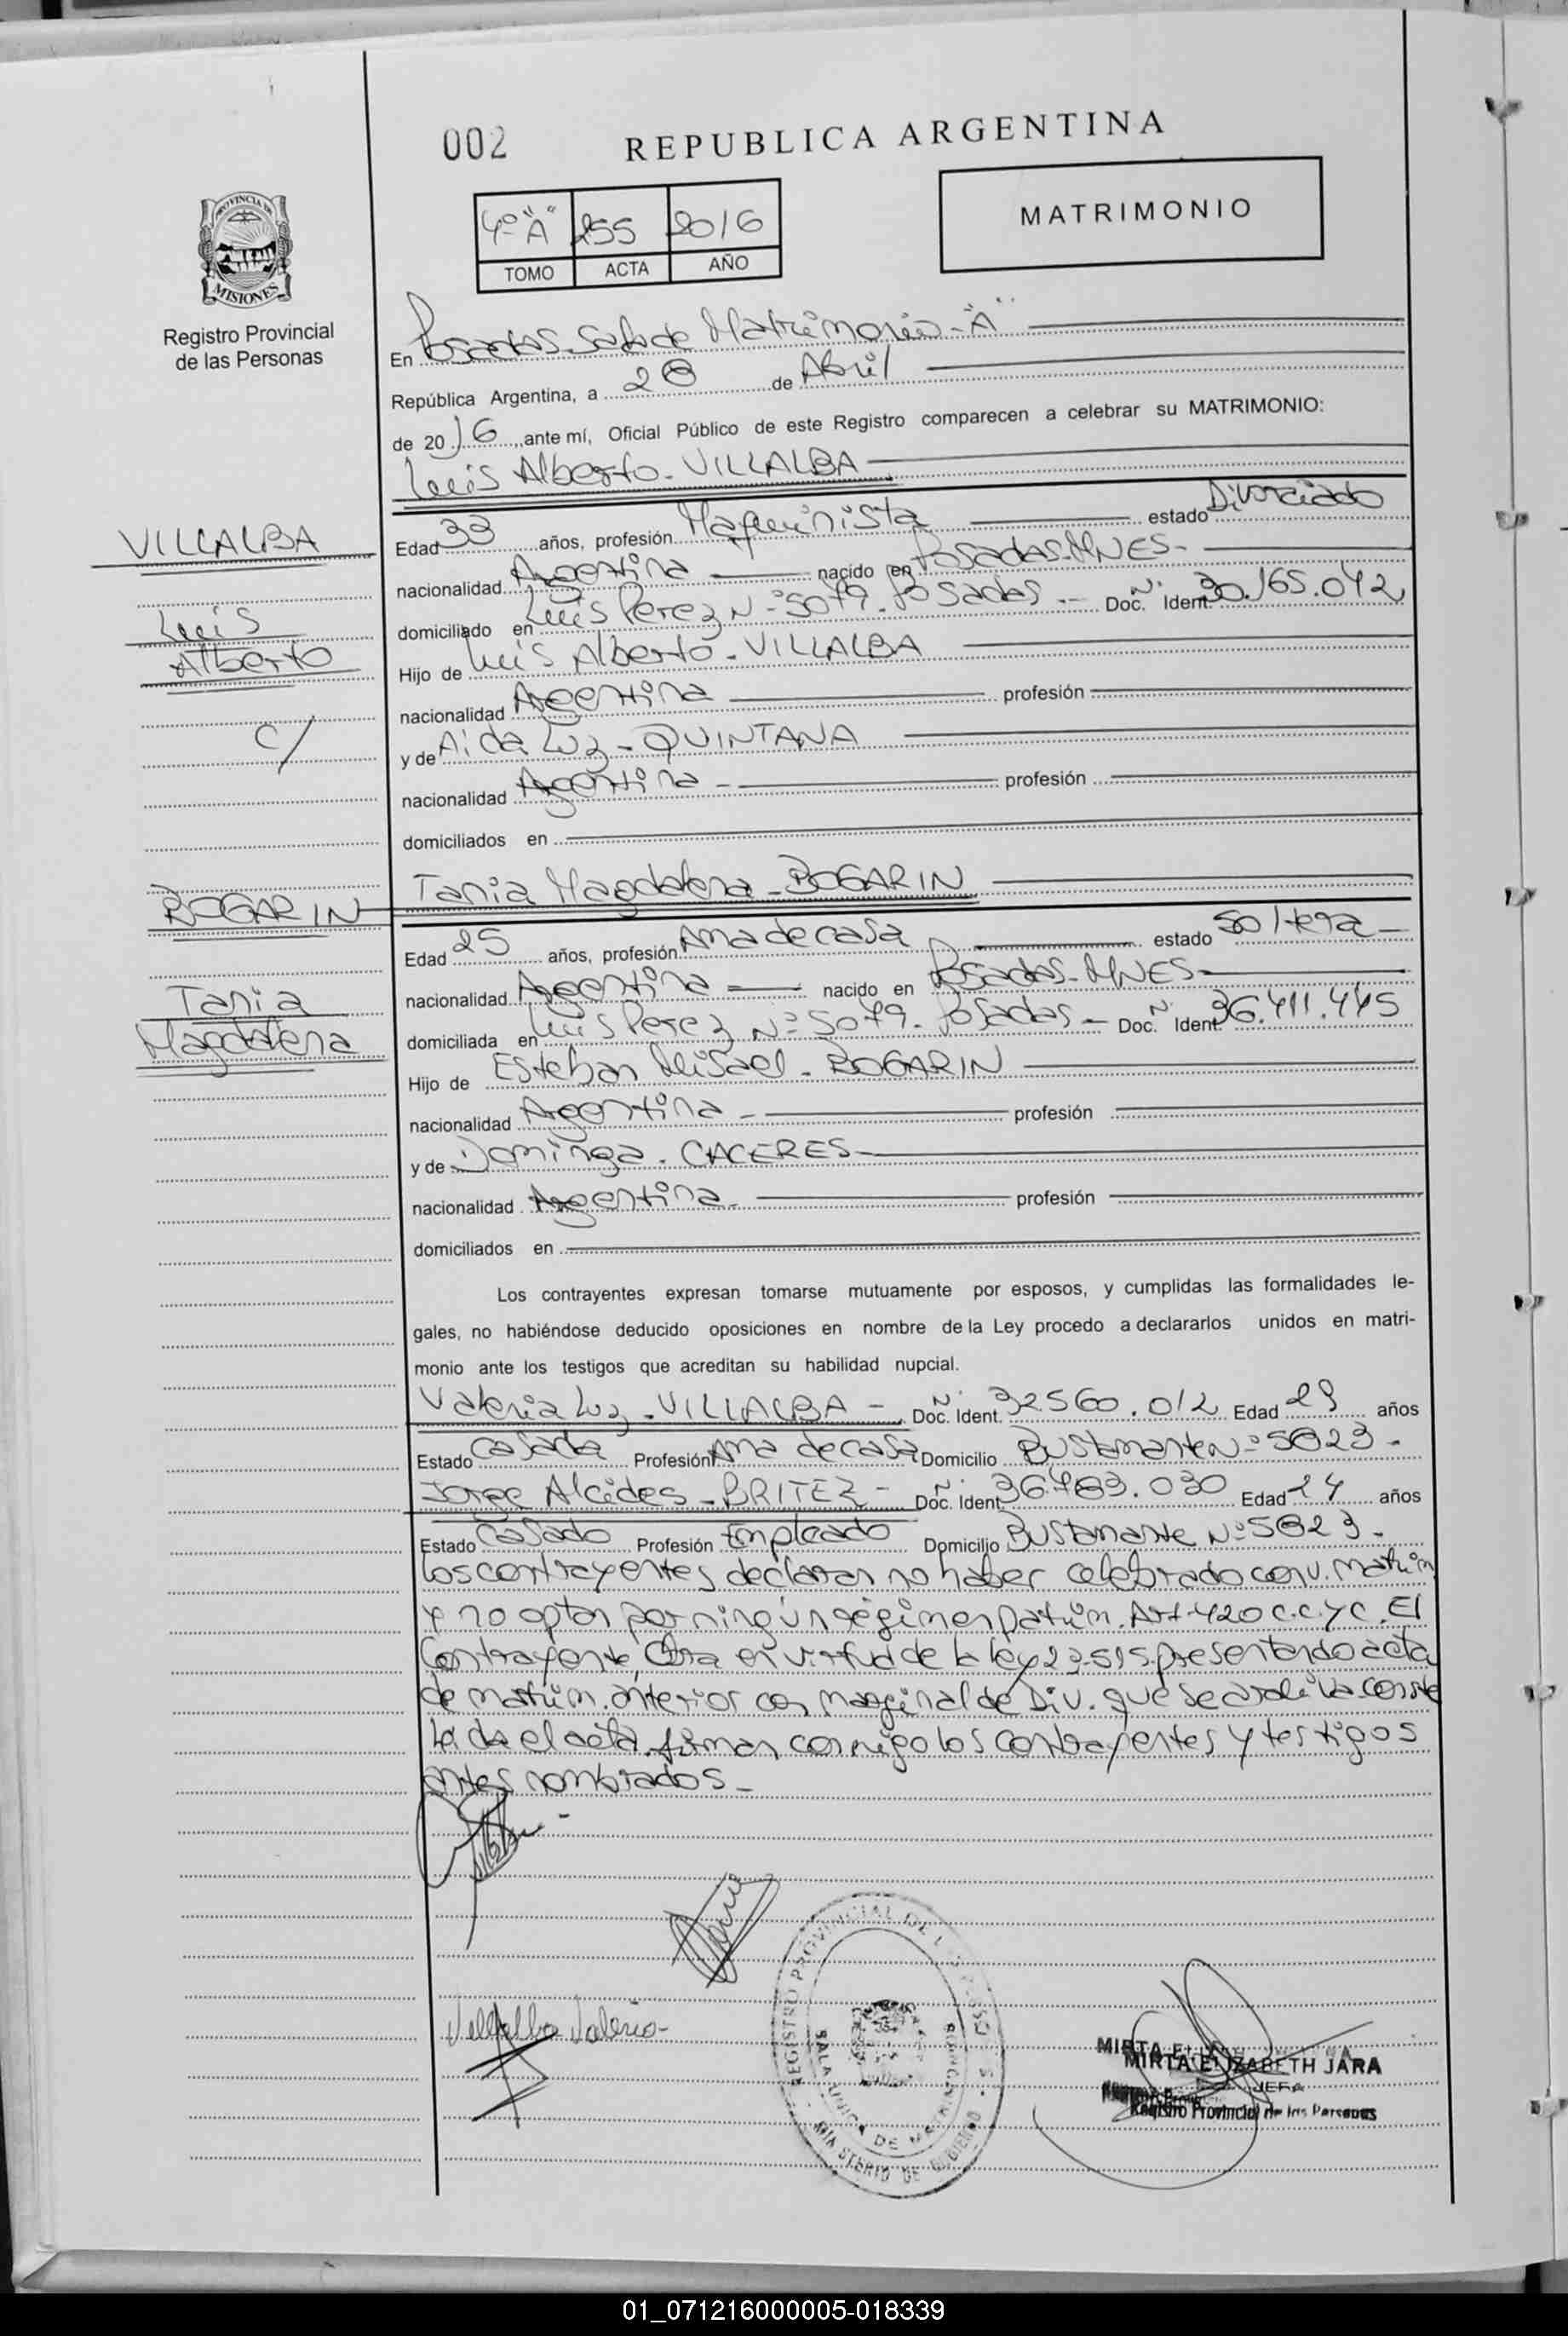 002
REPUBLICA ARGENTINA
4º "A" 255 2016
TOMO ACTA AÑO
MATRIMONIO
PROVINCIA DE
MISIONES
Registro Provincial
de las Personas
En Posadas Sala de Matrimonio - "A"
República Argentina, a 28 de Abril
de 2016, ante mí, Oficial Público de este Registro comparecen a celebrar su MATRIMONIO:
Luis Alberto - VILLALBA
VILLALBA
Luis
Alberto
c/
Edad 33 años, profesión Maquinista estado Divorciado
nacionalidad Argentina nacido en Posadas-MNES-
domiciliado en Luis Perez Nº 5079. Posadas - Doc. Nº Ident. 30.165.042
Hijo de Luis Alberto - VILLALBA
nacionalidad Argentina profesión
y de Aida Luz - QUINTANA
nacionalidad Argentina - profesión
domiciliados en
BOGARIN
Tania
Magdalena
Tania Magdalena - BOGARIN
Edad 25 años, profesión Ama de casa estado soltera -
nacionalidad Argentina nacido en Posadas-MNES-
domiciliada en Luis Perez Nº 5079. Posadas - Doc. Nº Ident. 36.411.445
Hijo de Esteban Misael - BOGARIN
nacionalidad Argentina - profesión
y de Dominga. CACERES-
nacionalidad Argentina- profesión
domiciliados en
Los contrayentes expresan tomarse mutuamente por esposos, y cumplidas las formalidades le-
gales, no habiéndose deducido oposiciones en nombre de la Ley procedo a declararlos unidos en matri-
monio ante los testigos que acreditan su habilidad nupcial.
Valeria Luz - VILLALBA - Doc. Nº Ident. 32560.012 Edad 29 años
Estado Casada Profesión Ama de casa Domicilio Bustamante Nº 5823-
Jorge Alcides - BRITEZ - Doc. Nº Ident. 36.463.030 Edad 24 años
Estado Casado Profesión Empleado Domicilio Bustamante Nº 5823-
Los contrayentes declaran no haber celebrado conv. matrim
y no optan por ningún régimen patrim. Art-420 C.C.y C. El
Contrayente, en virtud de la ley 23-515 presentando acta
de matrim. anterior con marginal de Div. que se archiva.
el acta. firman conmigo los contrayentes y testigos
antes nombrados-
Villalba Valeria-
REGISTRO PROVINCIAL DE LAS PERSONAS
SALA UNICA DE MATRIMONIO
MINISTERIO DE GOBIERNO
MIRTA ELIZABETH JARA
JEFA
Registro Provincial de las Personas
01_071216000005-018339